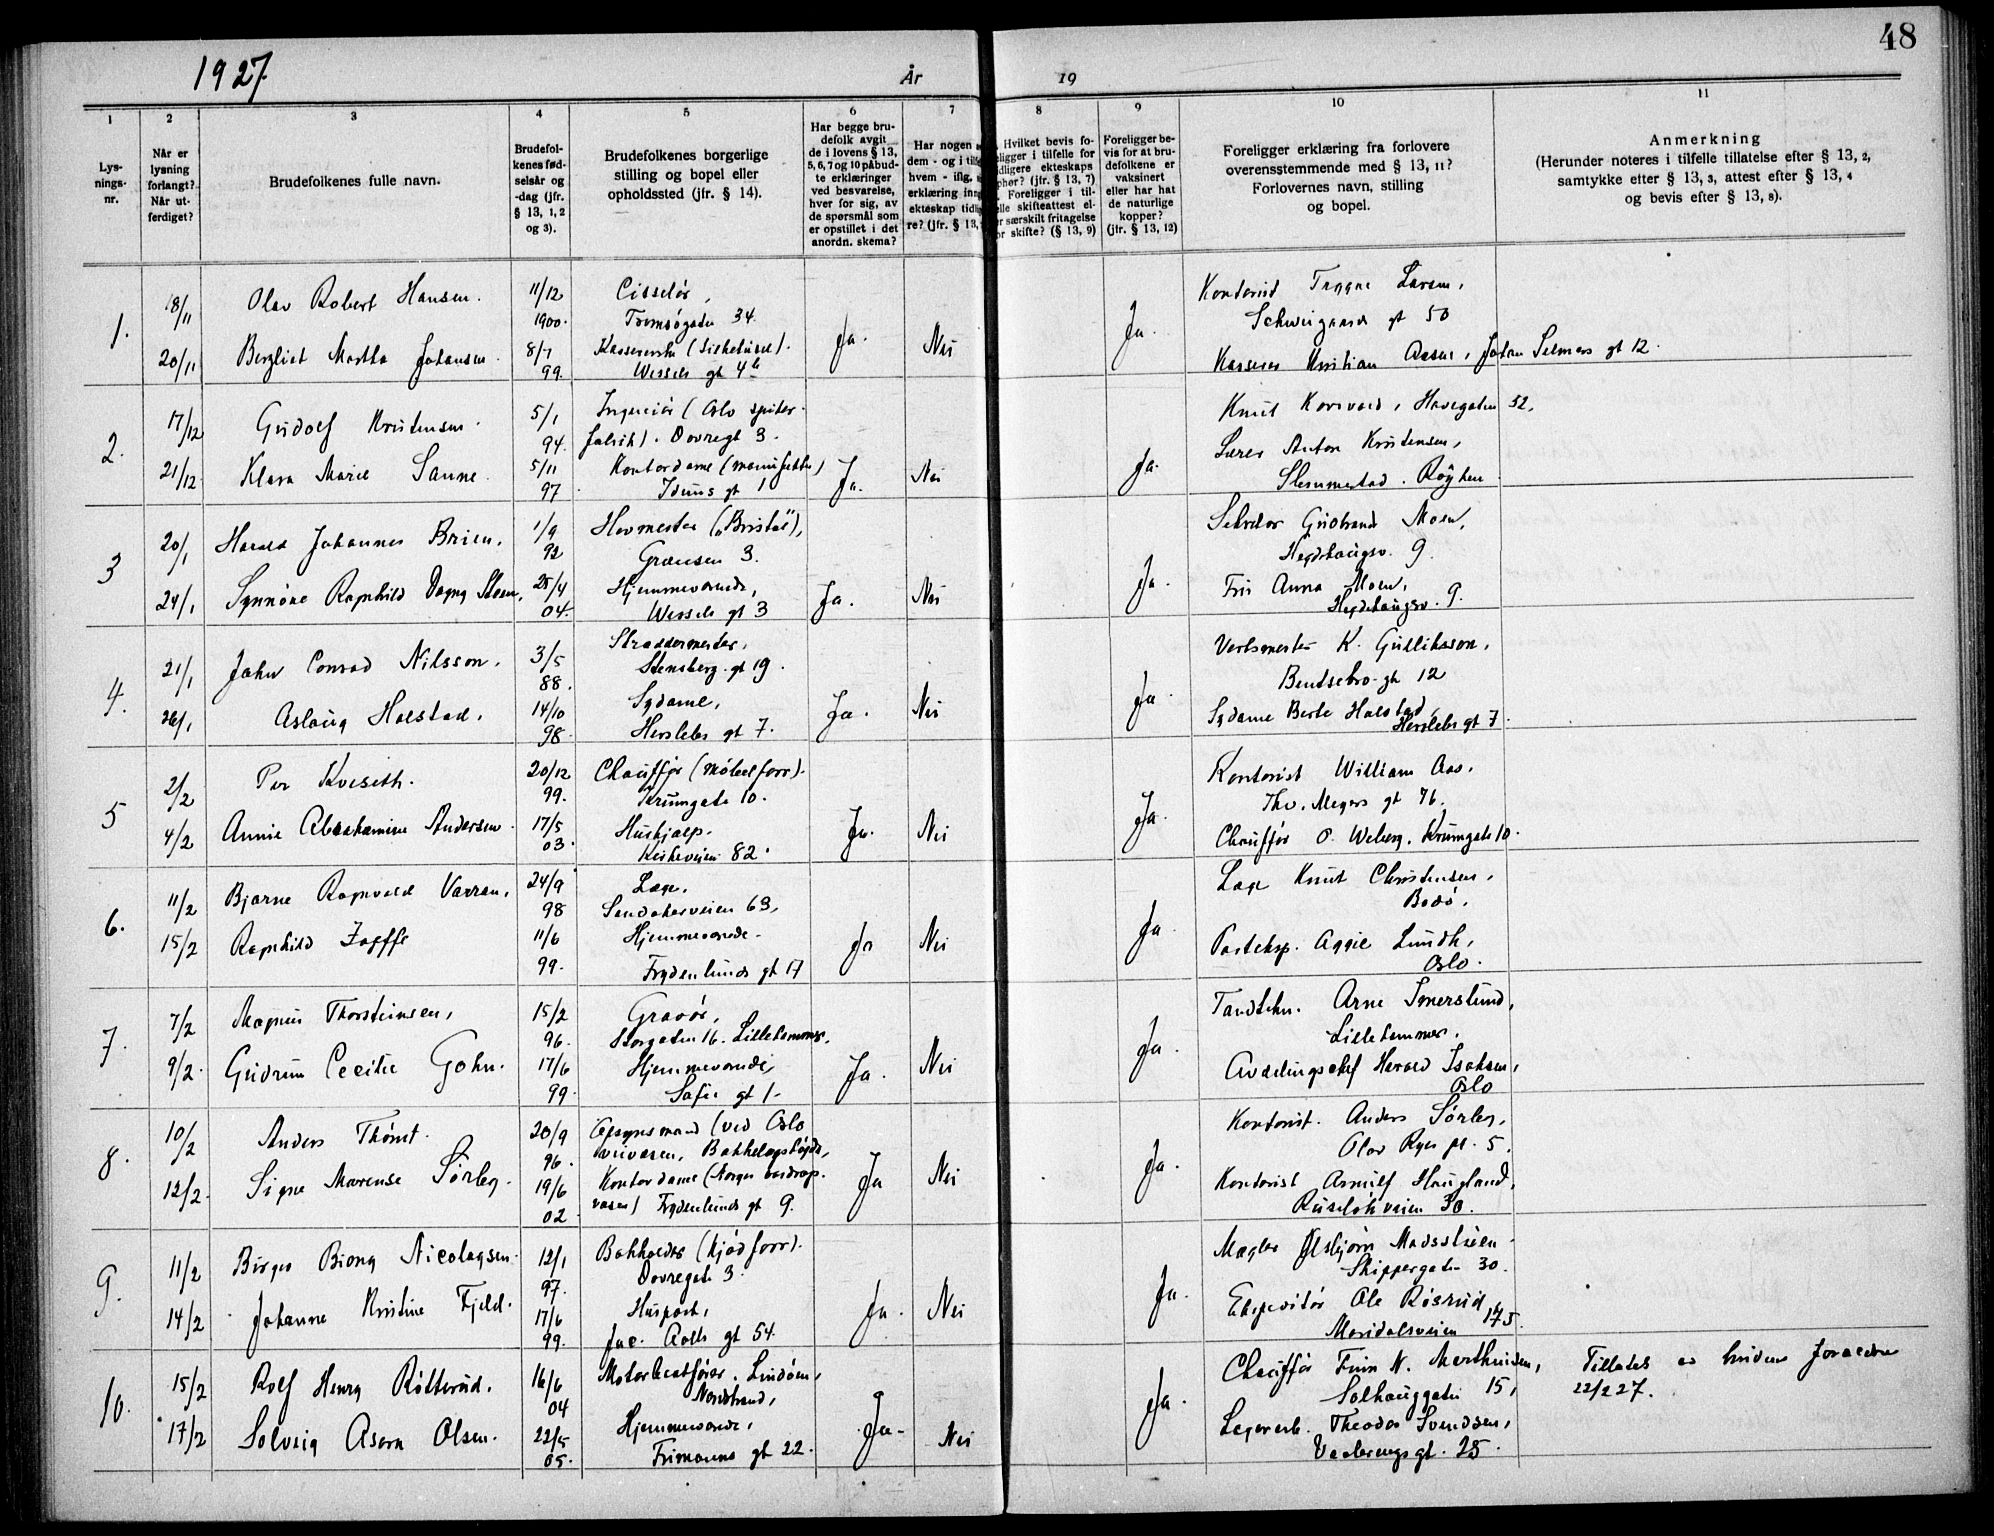 48
1927.
År
19
1
2
3
4
5
6
7
8
9
10
11
Lys-
nings-
nr.
Når er
lysning
forlangt?
Når ut-
ferdiget?
Brudefolkenes fulle navn.
Brudefol-
kenes fød-
selsår og
-dag (jfr.
§ 13, 1, 2
og 3).
Brudefolkenes borgerlige
stilling og bopel eller
opholdssted (jfr. § 14).
Har begge bru-
defolk avgit
de i lovens § 13,
5, 6, 7 og 10 påbud-
te erklæringer
ved besvarelse,
hver for sig, av
de spørsmål som
er opstillet i det
anordn. skema?
Har nogen
dem - og i
hvem - iflg.
erklæring
ekteskap
re? (jfr. § 13,
Hvilket bevis fo-
i tilfelle for
ekteskaps
(jfr. § 13, 7)
Foreligger i til-
skifteattest el-
særskilt fritagelse
skifte? (§ 13, 9)
Foreligger be-
vis for at bru-
defolkene er
vaksinert
eller har hat
de naturlige
kopper?
(jfr. § 13, 12)
Foreligger erklæring fra forlovere
overensstemmende med § 13, 11?
Forlovernes navn, stilling
og bopel.
Anmerkning
(Herunder noteres i tilfelle tillatelse efter § 13, 2,
samtykke etter § 13, 3, attest efter § 13, 4
og bevis efter § 13, 8).
1.
18/11
Olav Robert Hansen.
11/12
1900.
Ciselør,
Tromsøgaten 34.
20/11
Bergliot Martha Johansen.
8/7
99.
Wessels gt 4b
Ja.
Nei
Ja.
Kontorist Trygve Larsen,
Schweigaards gt 50
Kasserer Kristian Aasen, Johan Selmers gt 12.
2.
17/12
Gudolf Kristensen.
5/1
94.
Ingeniør (Oslo spiker-
fabrik). Dovregt 3.
21/12
Klara Marie Sanne.
5/11
97
Kontordame
Iduns gt 1
Ja.
Nei
Ja.
Knut Korsvold, Havegaten 32,
Lærer Anton Kristensen,
Slemmestad. Røyken
3
20/1
Harald Johannes Brien.
1/9
92
Hovmester ("Bristol"),
Grænsen 3.
24/1
Synnøve Ragnhild Dagny
25/4
04.
Hjemmeværende,
Wessels gt 3
Ja.
Nei
Ja.
Gudbrand Moen,
Hegdehaugsv. 9.
Fru Anna Moen,
Hegdehaugsv. 9.
4.
21/1
John Conrad Nilsson.
3/5
88.
Skreddermester,
Stensberg. gt 19.
26/1
Aslaug Halstad.
14/10
98.
Sydame,
Herslebs gt 7.
Ja.
Nei
Ja.
Verksmester K. Gulliksson,
Bentsebro. gt 12
Sydame Berte Halstad,
Herslebs gt 7.
5
2/2
Per Kveseth.
20/12
99.
Chauffør (Møbelforr).
Krumgate 10.
4/2
Annie Abrahamine Andersen.
17/5
03.
Hushjælp.
Kirkeveien 82.
Ja.
Nei
Ja.
Kontorist William Aas,
Thv. Meyers gt 76.
Chauffør O. Weberg. Krumgate 10.
6.
11/2
Bjarne Ragnvald Varran,
24/9
98
Læge,
Sandakerveien 63,
15/2
Ragnhild Joffe
11/6
99.
Hjemmeværende.
Frydenlunds gt 17
Ja
Nei
Ja.
Læge Knut Christensen,
Bodø.
Posteksp. Aggie Lundh,
Oslo.
7.
7/2
Magnus Thorsteinsen,
15/2
96.
Gravør,
Storgaten 16. Lillehammer.
9/2.
Gudrun Cecilie Gohn.
17/6
99.
Hjemmeværende,
Sofies gt 1.
Ja.
Nei
Ja.
Tandtekn. Arne Smerslund,
Lillehammer.
Avdelingschef Harald Isaksen,
Oslo
8.
10/2
Anders Thømt.
20/9
96.
Opsynsmand (ved Oslo
veivæsen, Bakkehaugen,
12/2.
Signe Marense Sørley.
19/6
02.
Kontordame (Norges vasdrags-
væsen) Frydenlunds gt 9.
Ja
Nei
Ja.
Kontorist. Anders Sørley,
Olav Ryes pl. 5.
Kontorist Arnulf Haugland,
Ruseløkveien 30.
9.
11/2
Birger Biong Nicolaysen.
12/1
97.
Bokholder (Kjødforr).
Dovregate 3.
14/2
Johanne Kristine Fjeld.
17/6
99.
Huspost,
Jac. Aalls gt 54.
Ja.
Nei
Ja.
Mægler Asbjørn Madsstuen.
Skippergaten 30.
Ekspeditør Ole Røsrud,
Maridalsveien 175.
10.
15/2
Rolf Henry Rølterud.
16/6
04
Motorbåtfører. Lindøen,
Nordstrand,
17/2
Solveig Asora Olsen.
22/5
05.
Hjemmeværende,
Frimanns gt 22.
Ja.
Nei
Ja.
Chauffør Finn N. Marthinsen,
Solhauggaten 15,
Lagerarb. Theodor Svendsen,
Vaalerengsgt. 25.
Tillatelse av brudens foreldre
22/2 27.